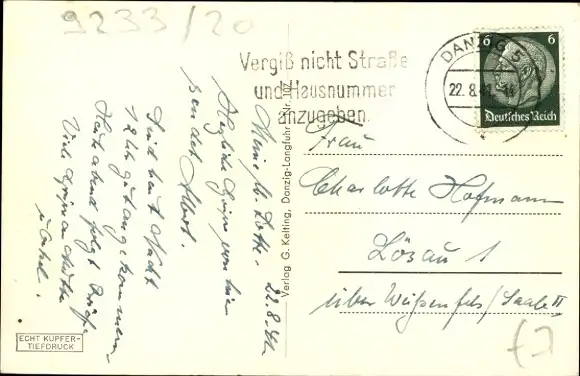 9233/20
Vergiß nicht Straße
und Hausnummer
anzugeben.
DANZIG 5
22.8.41
6 6
Deutsches Reich
22.8.41.
Meine lb. Lotte.
Herzliche Grüße von hier
sendet Albert.
Sind heut Nacht
12 Uhr gut angekommen
Heut abend folgt Brief.
Viele Grüße an Mutter
u.
Verlag G. Kelting, Danzig-Langfuhr Nr. 107
Frau
Charlotte Hofmann
Lösau 1
über Weißenfels/Saale II
ECHT KUPFER-
TIEFDRUCK